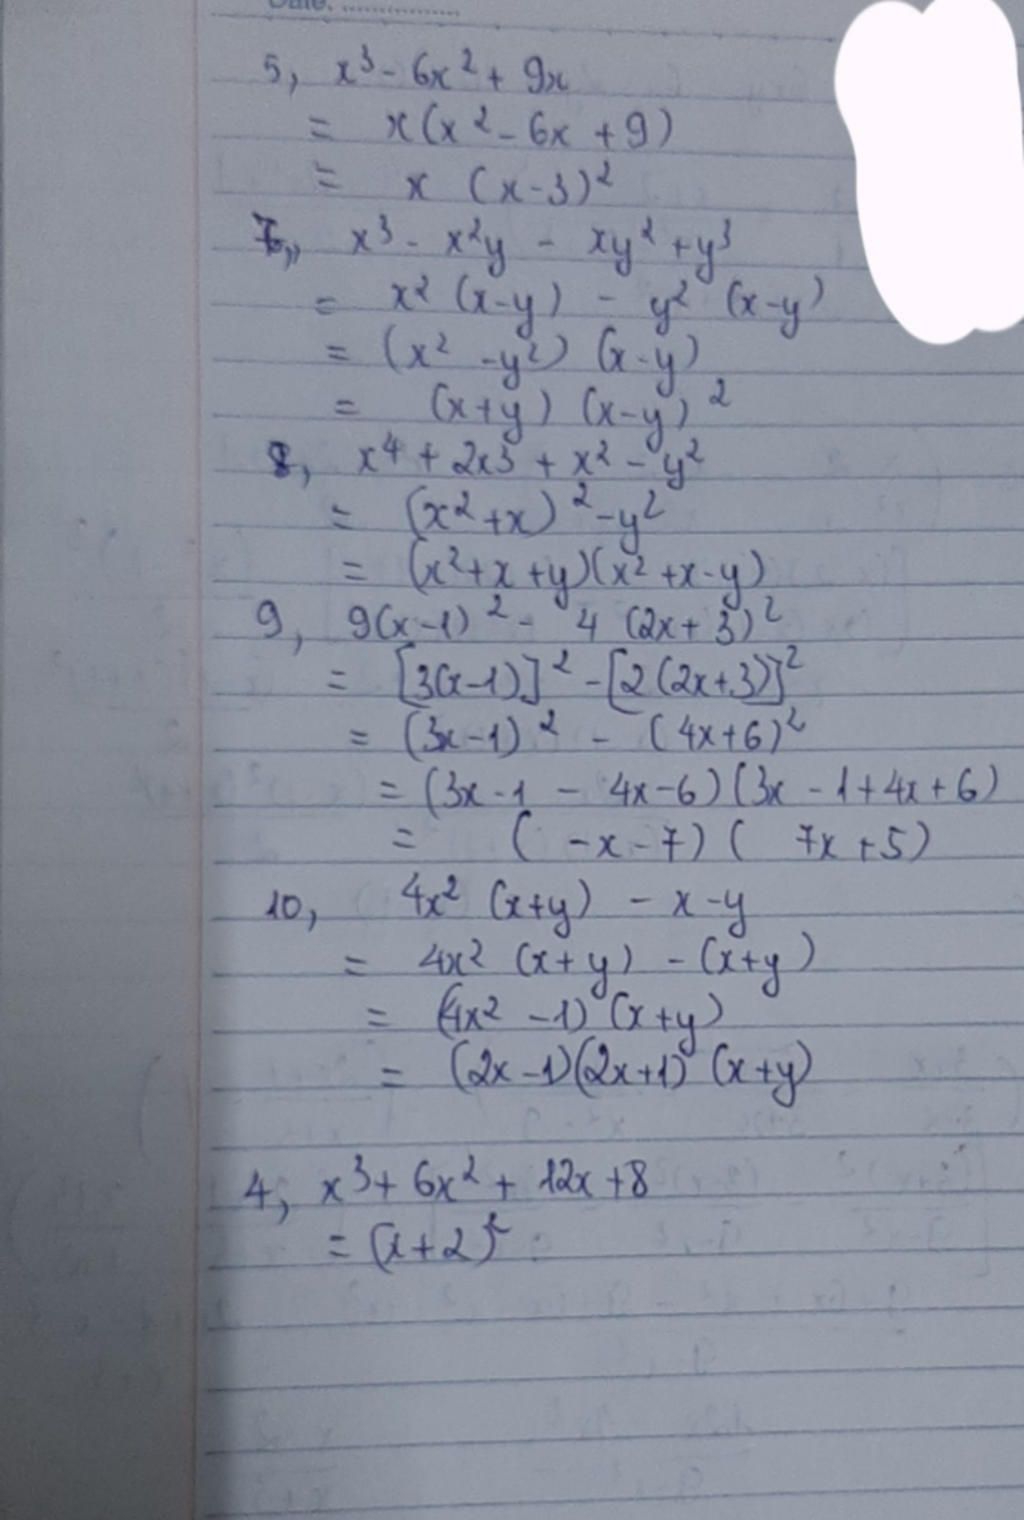 Date. ...............
5, x³ - 6x² + 9x
= x(x² - 6x + 9)
= x (x-3)²
7,, x³ - x²y - xy² + y³
= x² (x-y) - y² (x-y)
= (x² - y²) (x-y)
= (x+y) (x-y)²
8, x⁴ + 2x3 + x² - y²
= (x²+x)² - y²
= (x²+x+y)(x²+x-y)
9, 9(x-1)² - 4 (2x+3)²
= [3(x-1)]² - [2(2x+3)]²
= (3x-1)² - (4x+6)²
= (3x-1 - 4x-6)(3x-1+4x+6)
= ( -x-7) ( 7x+5)
10, 4x² (x+y) - x-y
= 4x² (x+y) - (x+y)
= (4x² -1) (x+y)
= (2x-1)(2x+1) (x+y)
4, x³ + 6x² + 12x + 8
= (x+2)